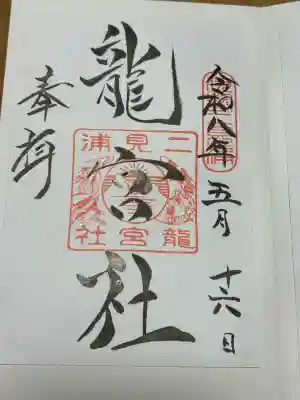 令和八年 五月 十六日
龍宮社
二見浦
龍宮社
奉拝